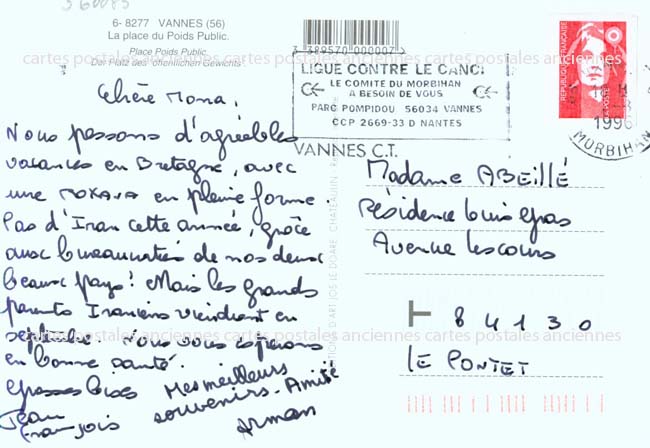 6- 8277 VANNES (56)
La place du Poids Public.
Place Poids Public.
Der Platz des öffentlichen Gewichts.
3 389570 000007
LIGUE CONTRE LE CANC
LE COMITE DU MORBIHAN
A BESOIN DE VOUS
PARC POMPIDOU 56034 VANNES
CCP 2669-33 D NANTES
VANNES C.T.
REPUBLIQUE FRANÇAISE
LA POSTE
1996
MORBIHAN
cartes postales anciennes cartes postales anciennes cartes postales anciennes
Chère Mona,
Nous passons d'agréables
vacances en Bretagne, avec
une ROXANA en pleine forme.
Pas d'Iran cette année, grâce
aux bureaucraties de nos deux
beaux pays! Mais les grands
parents Iraniens viendront en
septembre. Nous vous espérons
en bonne santé.
Grosses bises
Jean
François
Mes meilleurs
souvenirs. Amitié
Arman
Madame ABEILLÉ
Résidence Louis Gros
Avenue Lescours
84130
LE PONTET
cartes postales anciennes cartes postales anciennes cartes postales anciennes